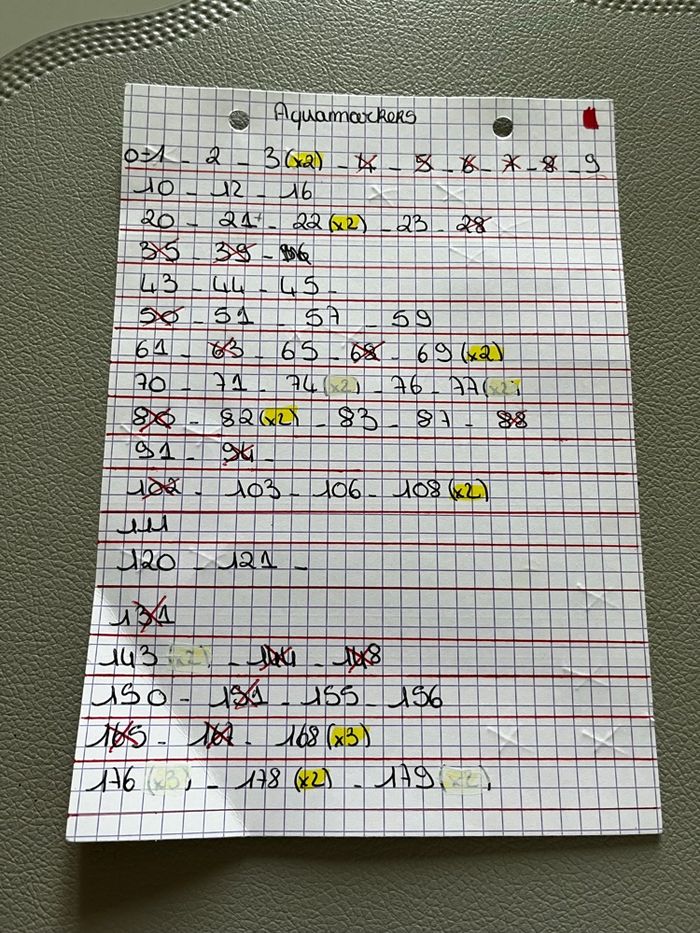 Aquamarkers
0-1 - 2 - 3 (x2) - 4 - 5 - 6 - 7 - 8 - 9
10 - 12 - 16
20 - 21 - 22 (x2) - 23 - 28
35 - 39 -
43 - 44 - 45 -
50 - 51 - 57 - 59
61 - 63 - 65 - 68 - 69 (x2)
70 - 71 - 74 (x2) - 76 - 77 (x2)
80 - 82 (x2) - 83 - 87 - 88
91 - 94 -
102 - 103 - 106 - 108 (x2)
111
120 - 121 -
131
143 (x2) - 144 - 148
150 - 151 - 155 - 156
165 - 167 - 168 (x3)
176 (x3) - 178 (x2) - 179 (x2)